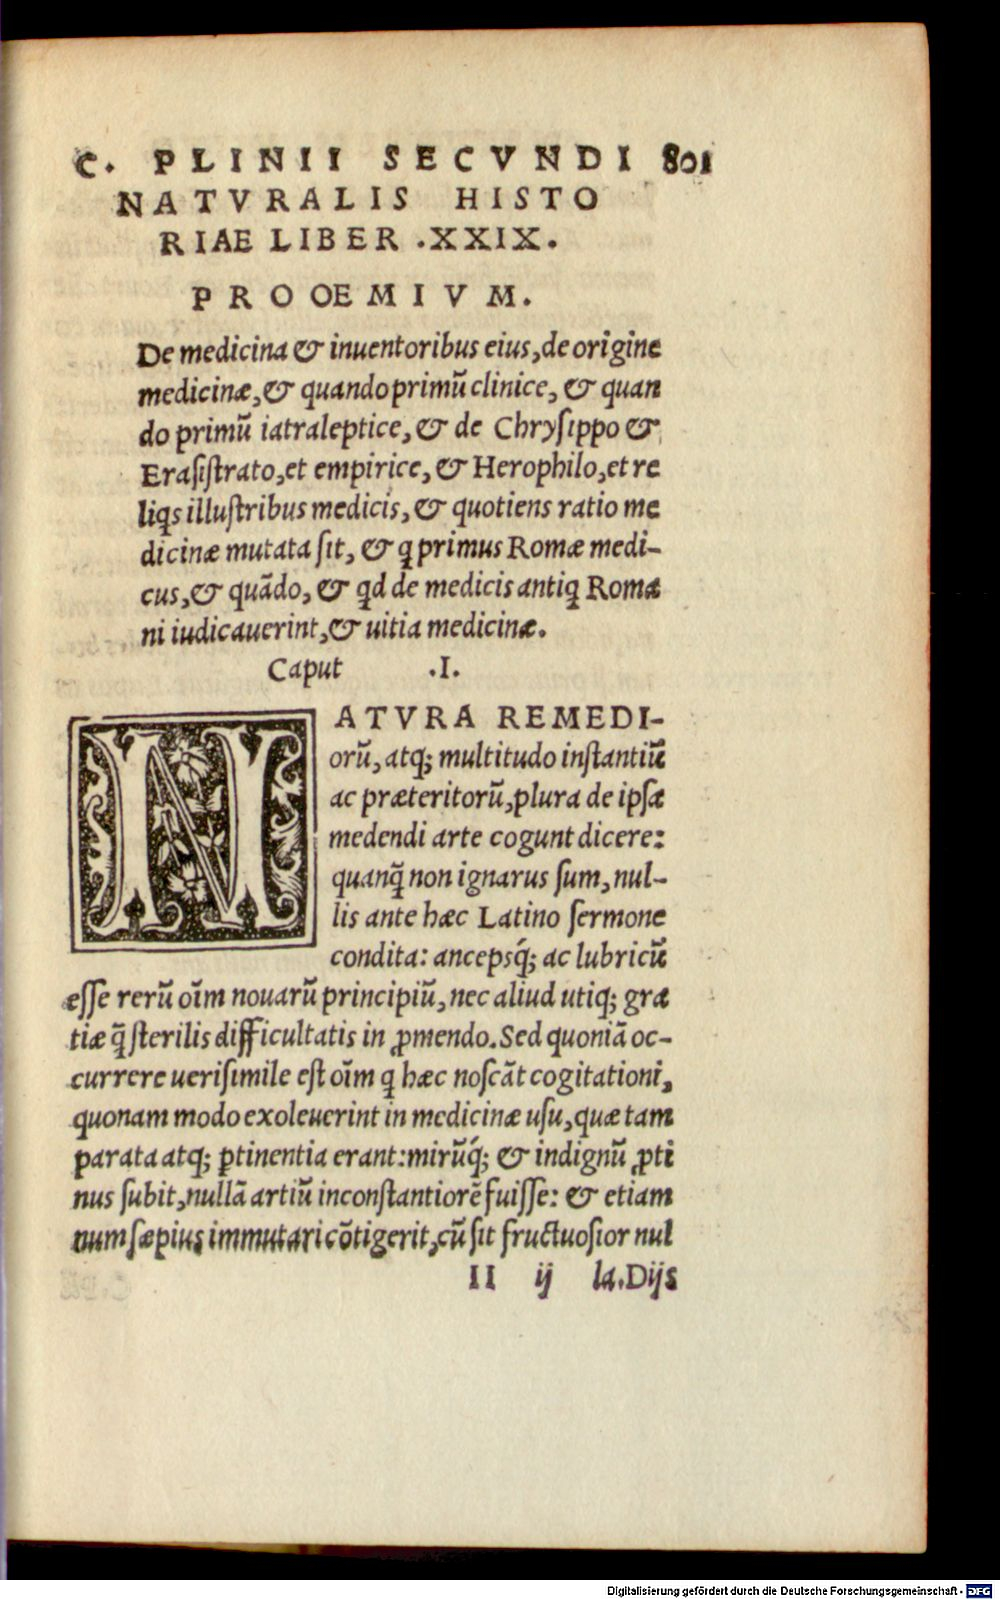 C. PLINII SECVNDI 801
NATVRALIS HISTO
RIAE LIBER .XXIX.
PROOEMIVM.
De medicina & inuentoribus eius, de origine
medicinæ, & quando primũ clinice, & quan
do primũ iatraleptice, & de Chrysippo &
Erasistrato, et empirice, & Herophilo, et re
liqs illustribus medicis, & quotiens ratio me
dicinæ mutata sit, & q primus Romæ medi-
cus, & quãdo, & qd de medicis antiq Roma
ni iudicauerint, & uitia medicinæ.
Caput .I.
NATVRA REMEDI-
orũ, atq; multitudo instantiũ
ac præteritorũ, plura de ipsa
medendi arte cogunt dicere:
quanq̃ non ignarus sum, nul-
lis ante hæc Latino sermone
condita: ancepsq́; ac lubricũ
esse rerũ oĩm nouarũ principiũ, nec aliud utiq; gra
tiæ q̃ sterilis difficultatis in ꝓmendo. Sed quoniã oc-
currere uerisimile est oĩm q hæc noscãt cogitationi,
quonam modo exoleuerint in medicinæ usu, quæ tam
parata atq; ꝑtinentia erant: mirũq́; & indignũ ꝓti
nus subit, nullã artiũ inconstantiorẽ fuisse: & etiam
num sæpius immutari cõtigerit, cũ sit fructuosior nul
II ij la. Dijs
Digitalisierung gefördert durch die Deutsche Forschungsgemeinschaft - DFG